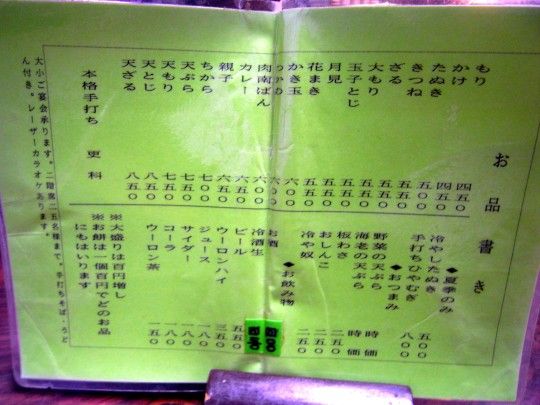 お品書き
もり 四五〇
かけ 四五〇
たぬき 五〇〇
きつね 五五〇
ざる 五五〇
大もり 五五〇
玉子とじ 五五〇
月見 五五〇
花まき 五五〇
かき玉 六〇〇
肉南ばん 六〇〇
カレー 六五〇
親子 六五〇
ちから 七〇〇
天ぷら 七五〇
天もり 七五〇
天とじ 八五〇
天ざる 八五〇
本格手打ち 更科
◆夏季のみ
冷やしたぬき 五〇〇
手打ちひやむぎ 八〇〇
◆おつまみ
野菜の天ぷら 時価
海老の天ぷら 時価
板わさ 二五〇
おしんこ 二五〇
冷や奴 二五〇
◆お飲み物
お酒
冷酒生
ビール 五五〇
ウーロンハイ 三五〇
ジュース 一八〇
サイダー 一八〇
コーラ 一八〇
ウーロン茶 一五〇
※大盛りは百円増し
※お餅は一個百円でどのお品
にもはいります
大小ご宴会承ります。二階席二五名様まで。手打ちそば・うど
ん付き。レーザーカラオケあります。